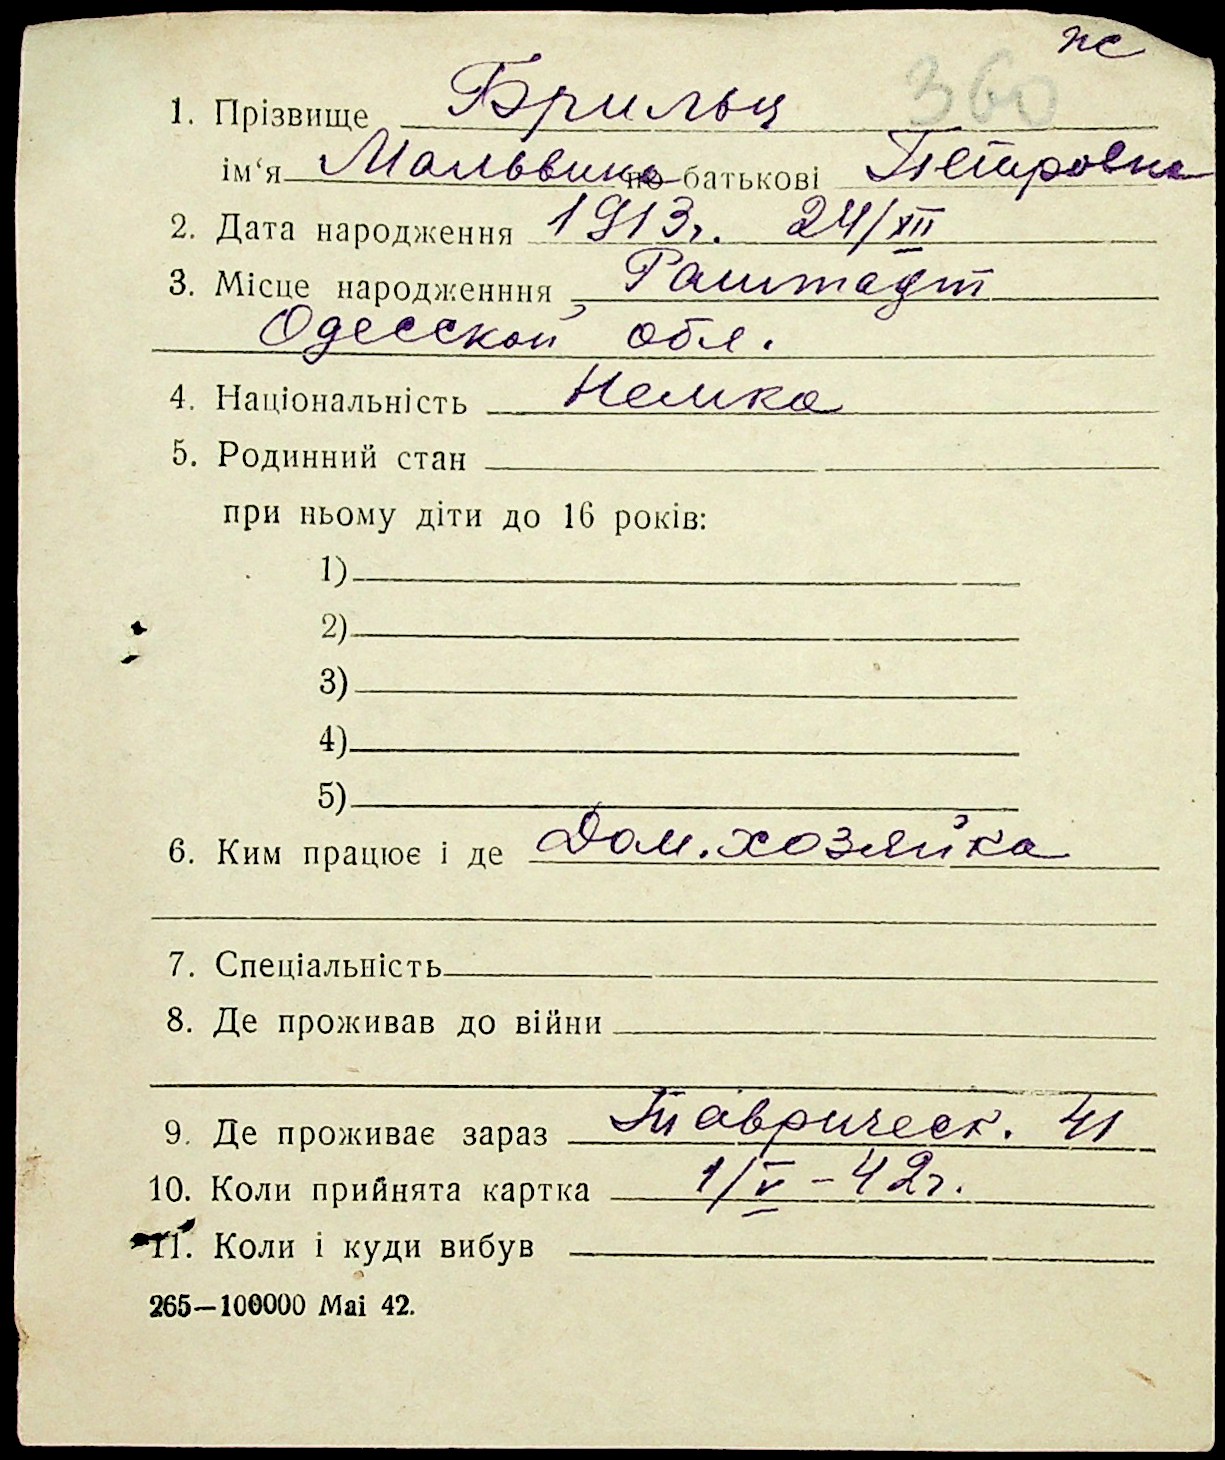 пс
360
1. Прізвище Брильц
ім‘я Мальвина по батькові Петровна
2. Дата народження 1913г. 24/XII
3. Місце народженння Раштадт
Одесской обл.
4. Національність Немка
5. Родинний стан
при ньому діти до 16 років:
1)
2)
3)
4)
5)
6. Ким працює і де Дом. хозяйка
7. Спеціальність
8. Де проживав до війни
9. Де проживає зараз Таврическ. 41
10. Коли прийнята картка 1/V – 42г.
11. Коли і куди вибув
265—100000 Mai 42.